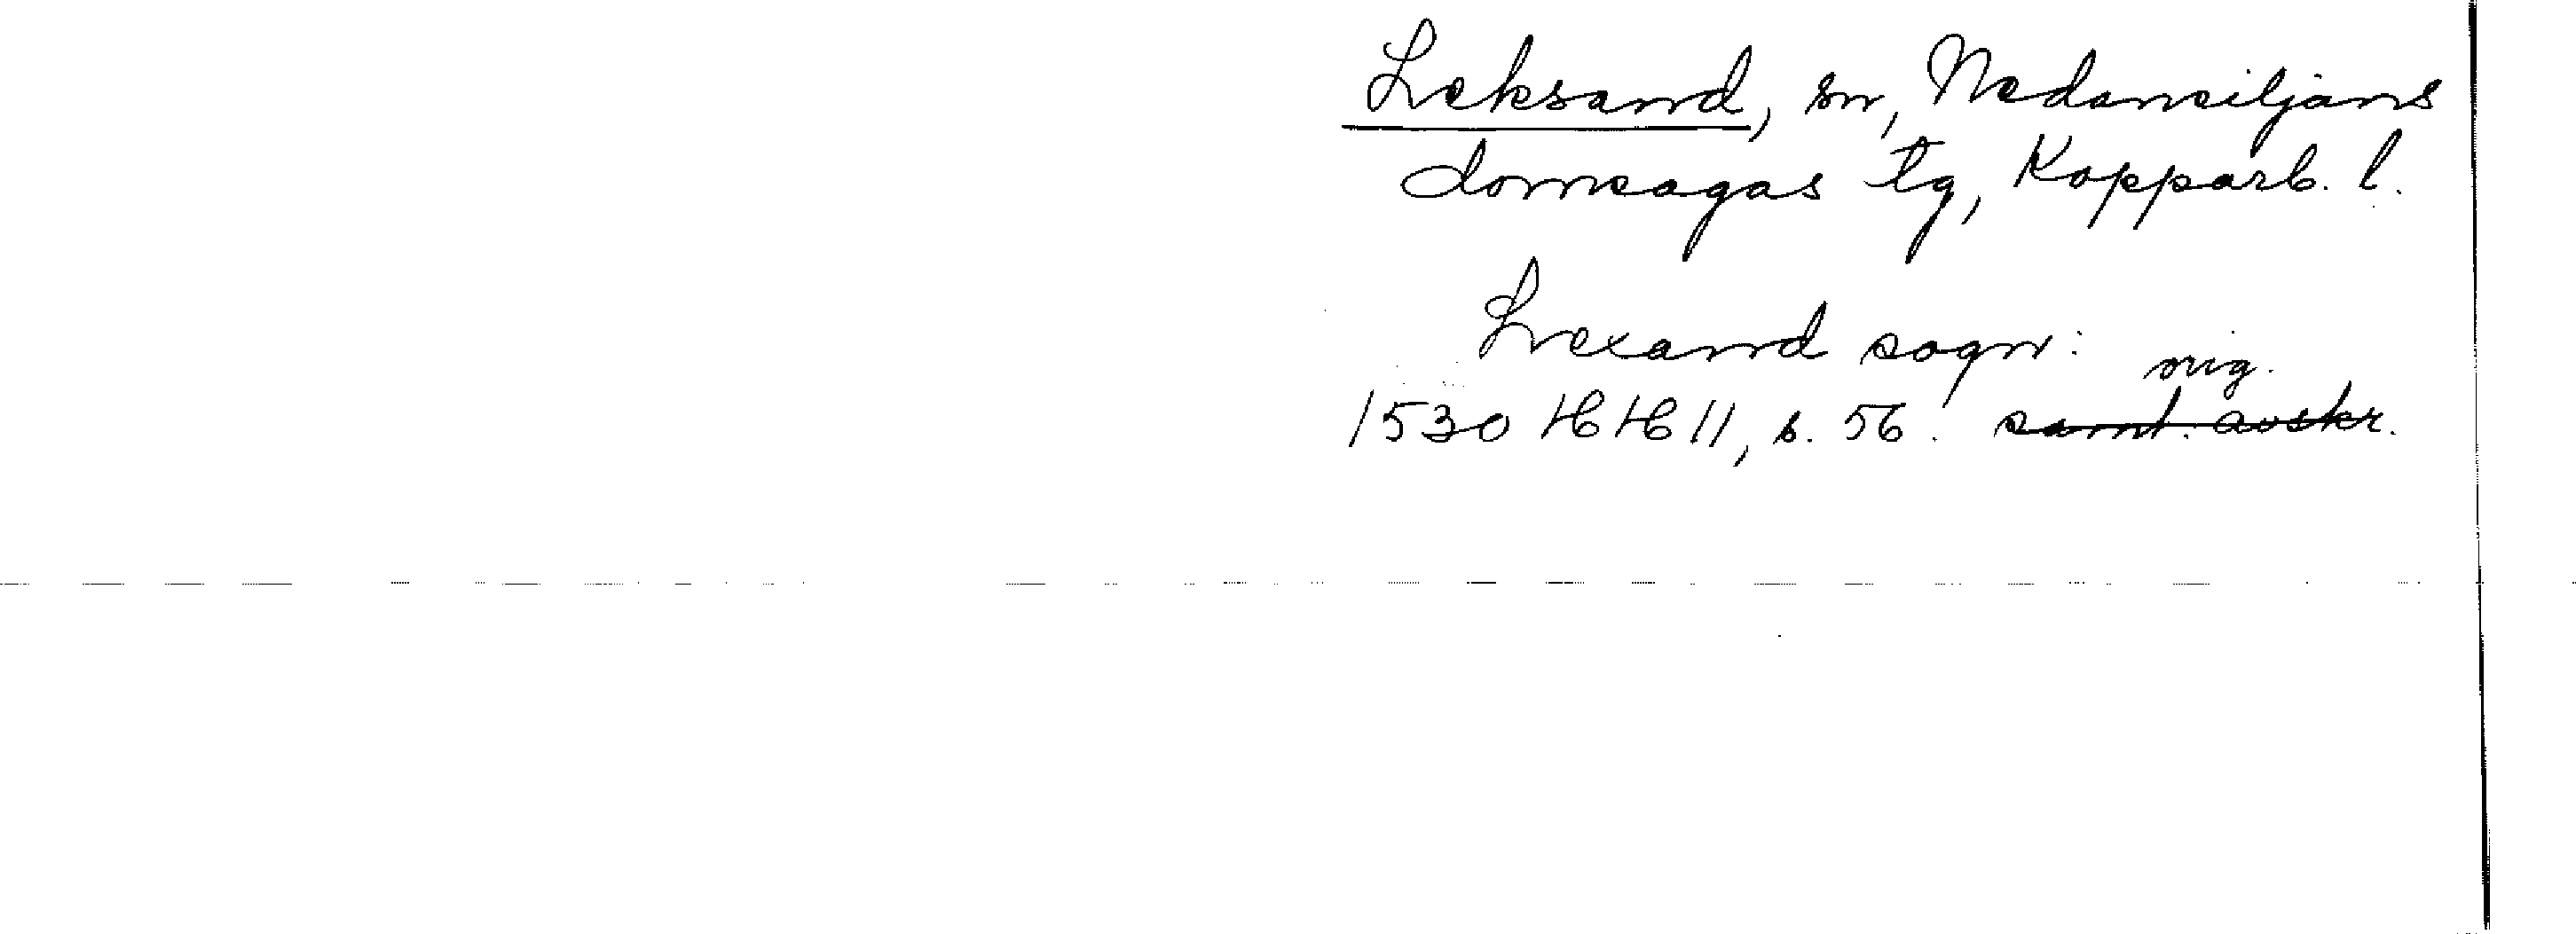 Leksand, sn, Nedansiljans
domsagas tg, Kopparb. l.
Lexand sogn:
orig.
1530 HH 11, s. 56. samt. avskr.